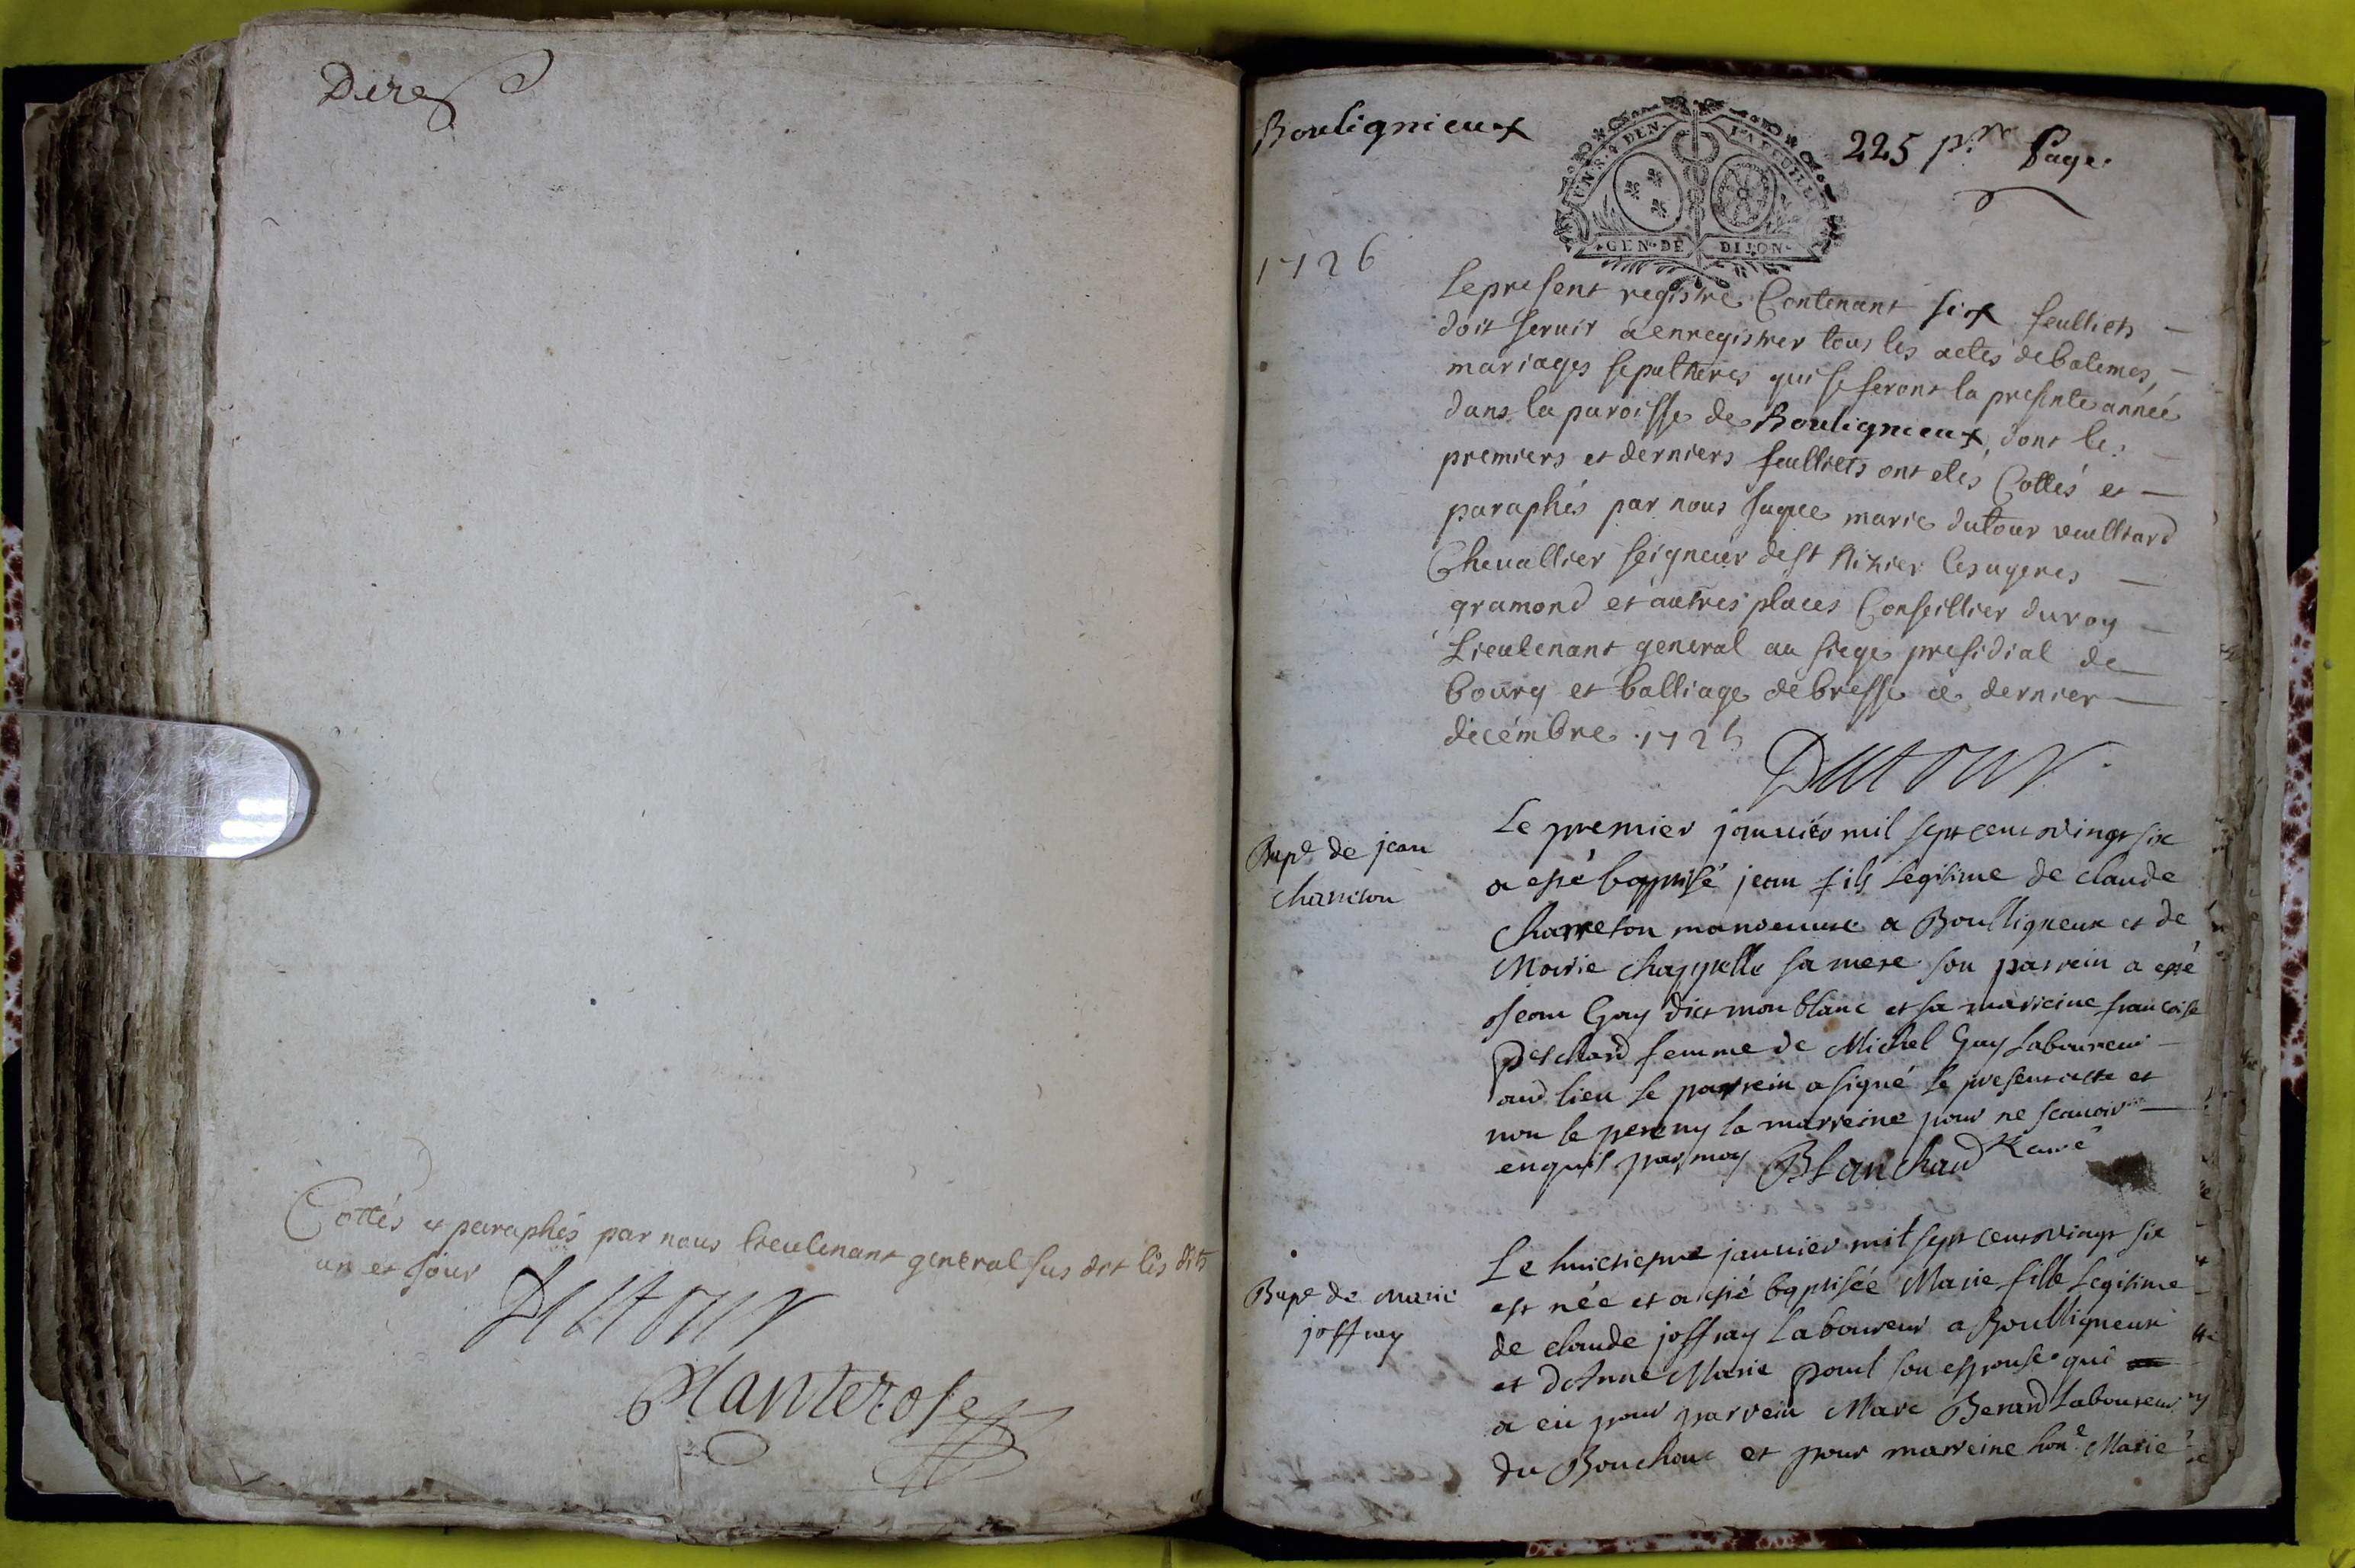 Dire
Cottés et paraphés par nous lieutenant general sus dit les dits
an et jour
Dutour
Planterose
Bouligneux
UN S. 4 DEN. LA FEUILLE
GEN. DE DIJON
225 p.re page
1726
Le present registre Contenant six feulliets
doit servir a enregistrer tous les actes de batemes,
mariages sepultures qui se feront la presente année
dans la paroisse de Bouligneux, dont les
premiers et derniers feulliets ont etés Cottés et
paraphés par nous Jaque marie dutour vuilliard
Chevallier seigneur de st Nizier
gramond et autres places Conseillier du roy
Lieutenant general au siege presidial de
bourg et balliage de bresse ce dernier
décémbre 1725
Dutour
Bape de jean
charreton
Le premier janvier mil sept cent vingt six
a esté baptisé jean fils legitime de claude
Charreton a Boulligneux et de
Marie chappelle sa mere son parrein a esté
Jean Guy dict mon blanc et sa marreine francoise
femme de Michel Guy Laboureur
aud lieu le parrein a signé le present acte et
non le pere ny la marreine pour ne scavoir
enquis par moy Blanchard curé
Bape de marie
joffray
Le huictiesme janvier mil sept cent vingt six
est née et a esté baptisée Marie fille legitime
de claude joffray Laboureur a Boulligneux
et d'Anne Marie son espouse qui
a eu pour parrein Marc Berard Laboureur
du Bouchoux et pour marreine hone Marie